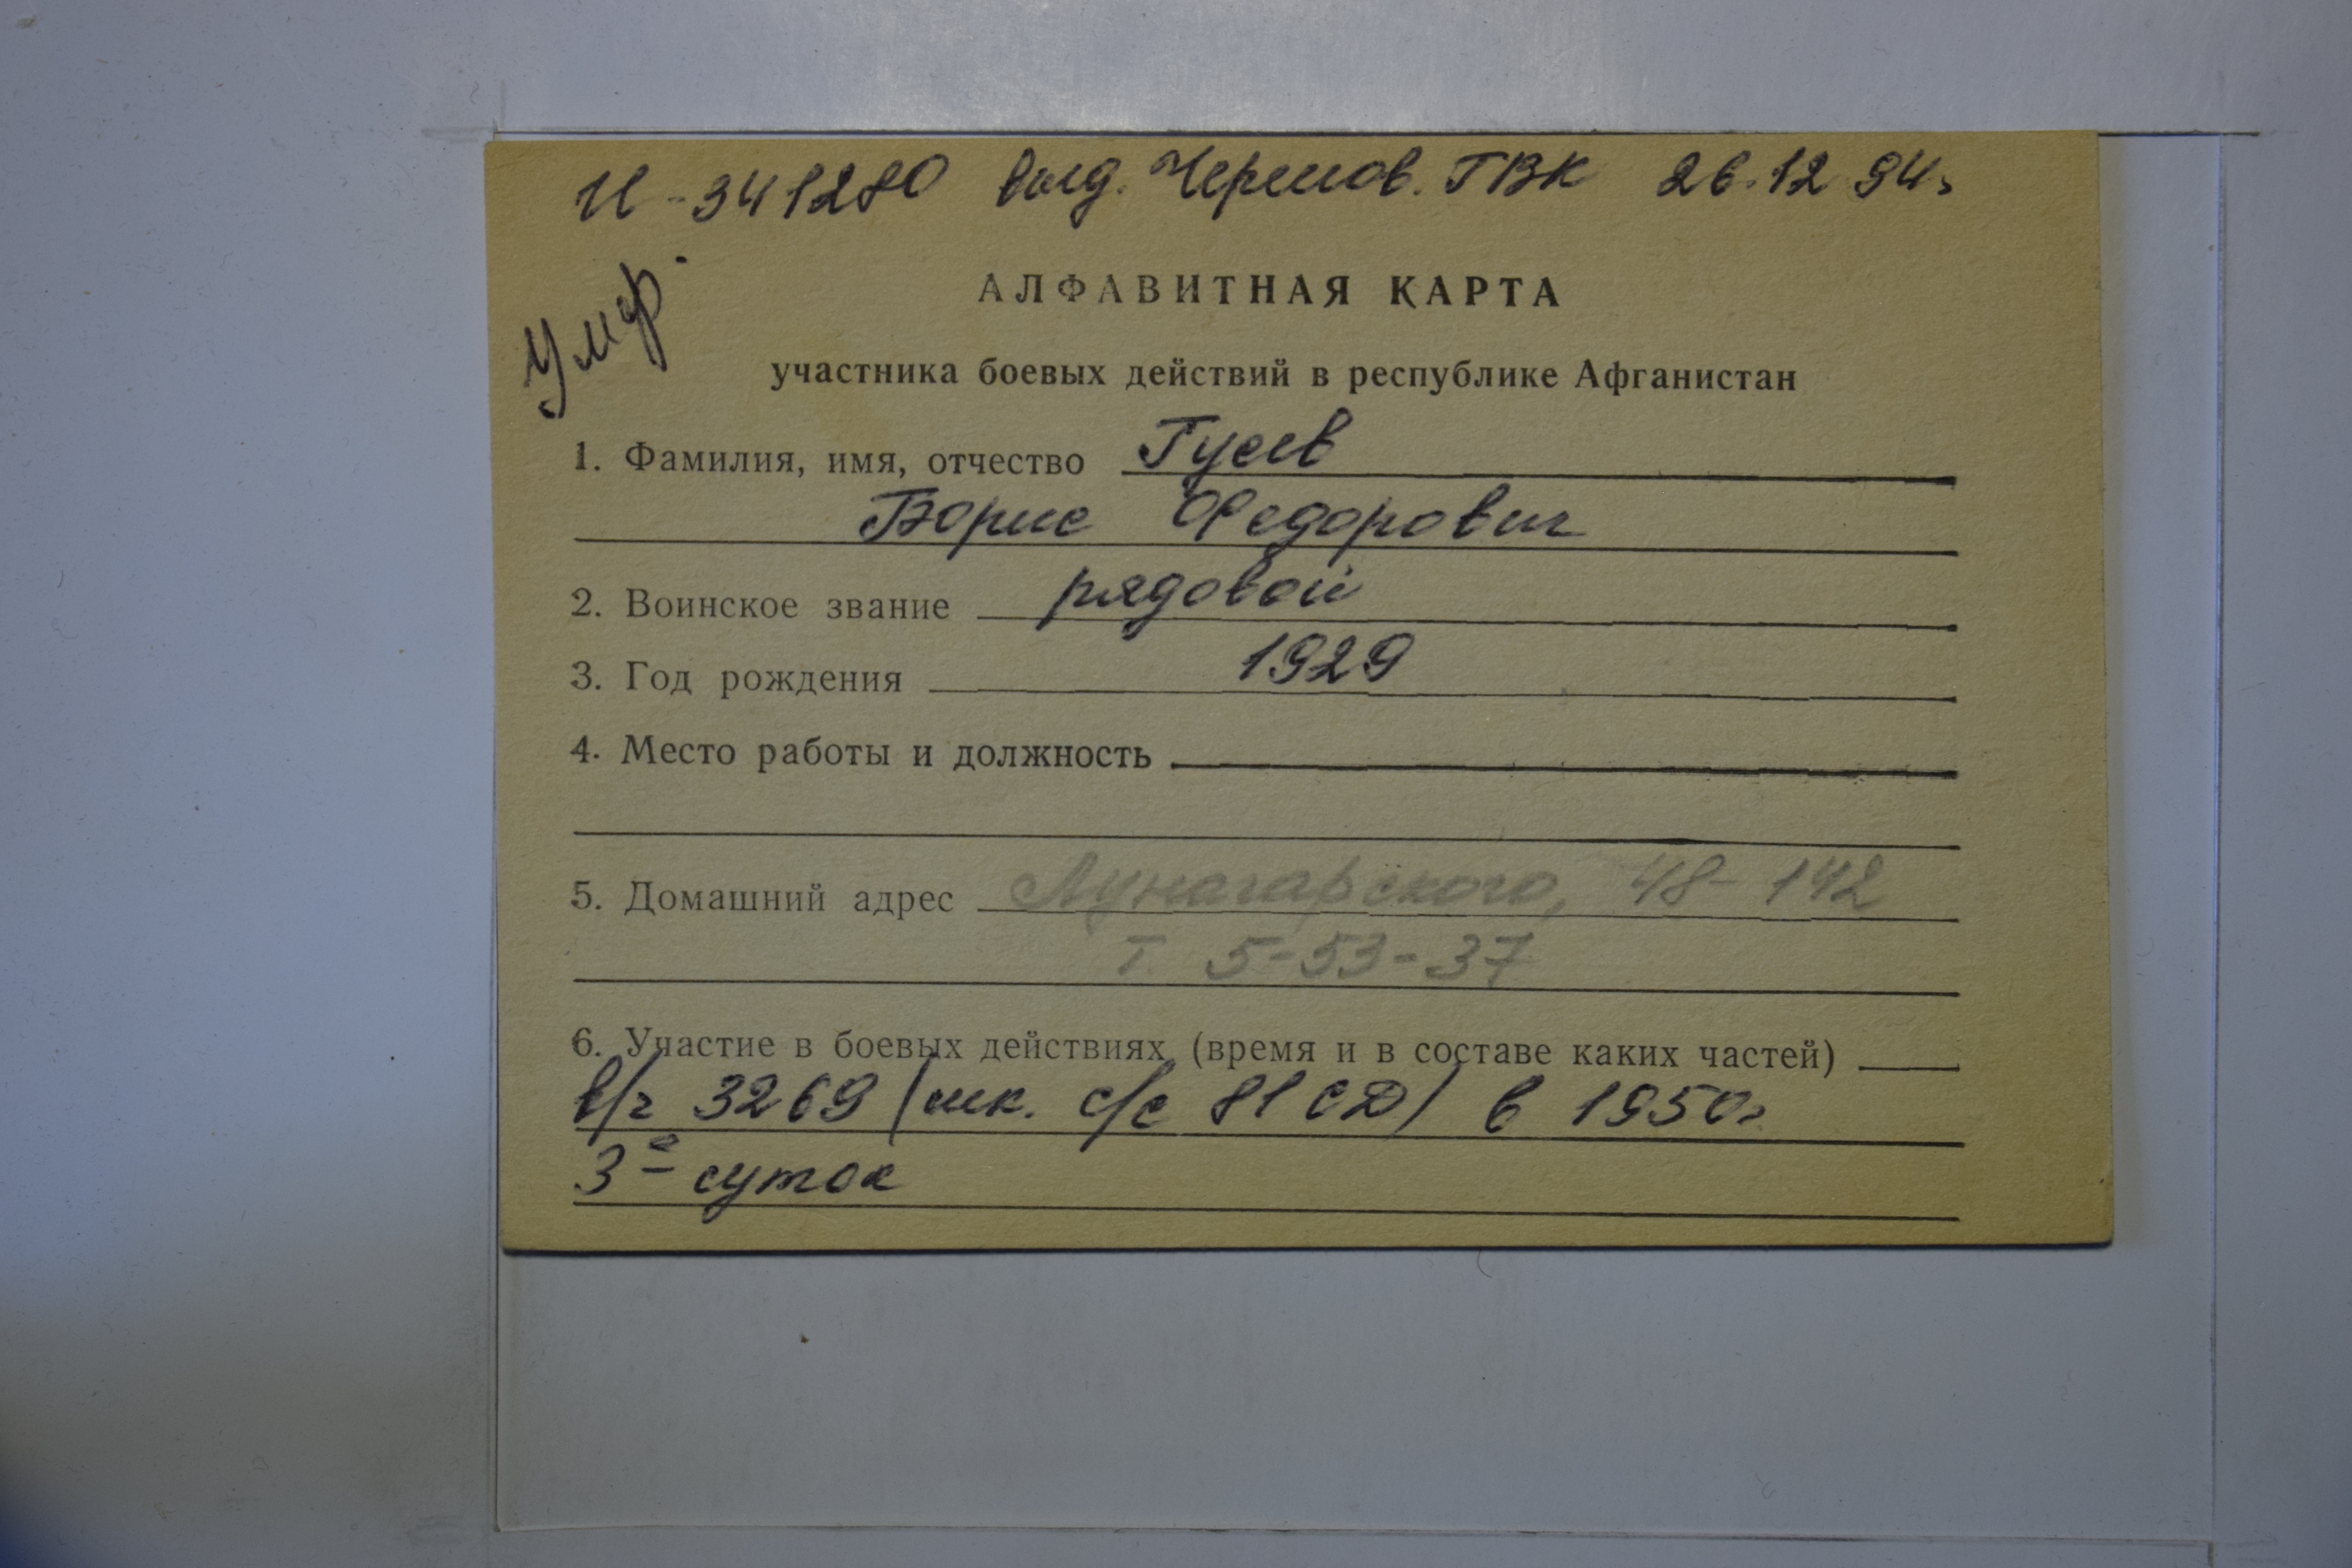 И-341280 выд. Черепов. ГВК 26.12.94г
АЛФАВИТНАЯ КАРТА
участника боевых действий в республике Афганистан
1. Фамилия, имя, отчество Гусев
Борис Федорович
2. Воинское звание рядовой
3. Год рождения 1929
4. Место работы и должность
5. Домашний адрес Луначарского, 48-142
т. 5-53-37
6. Участие в боевых действиях (время и в составе каких частей)
в/ч 3269 (шк. с/с 81 СД) в 1950г
3е суток